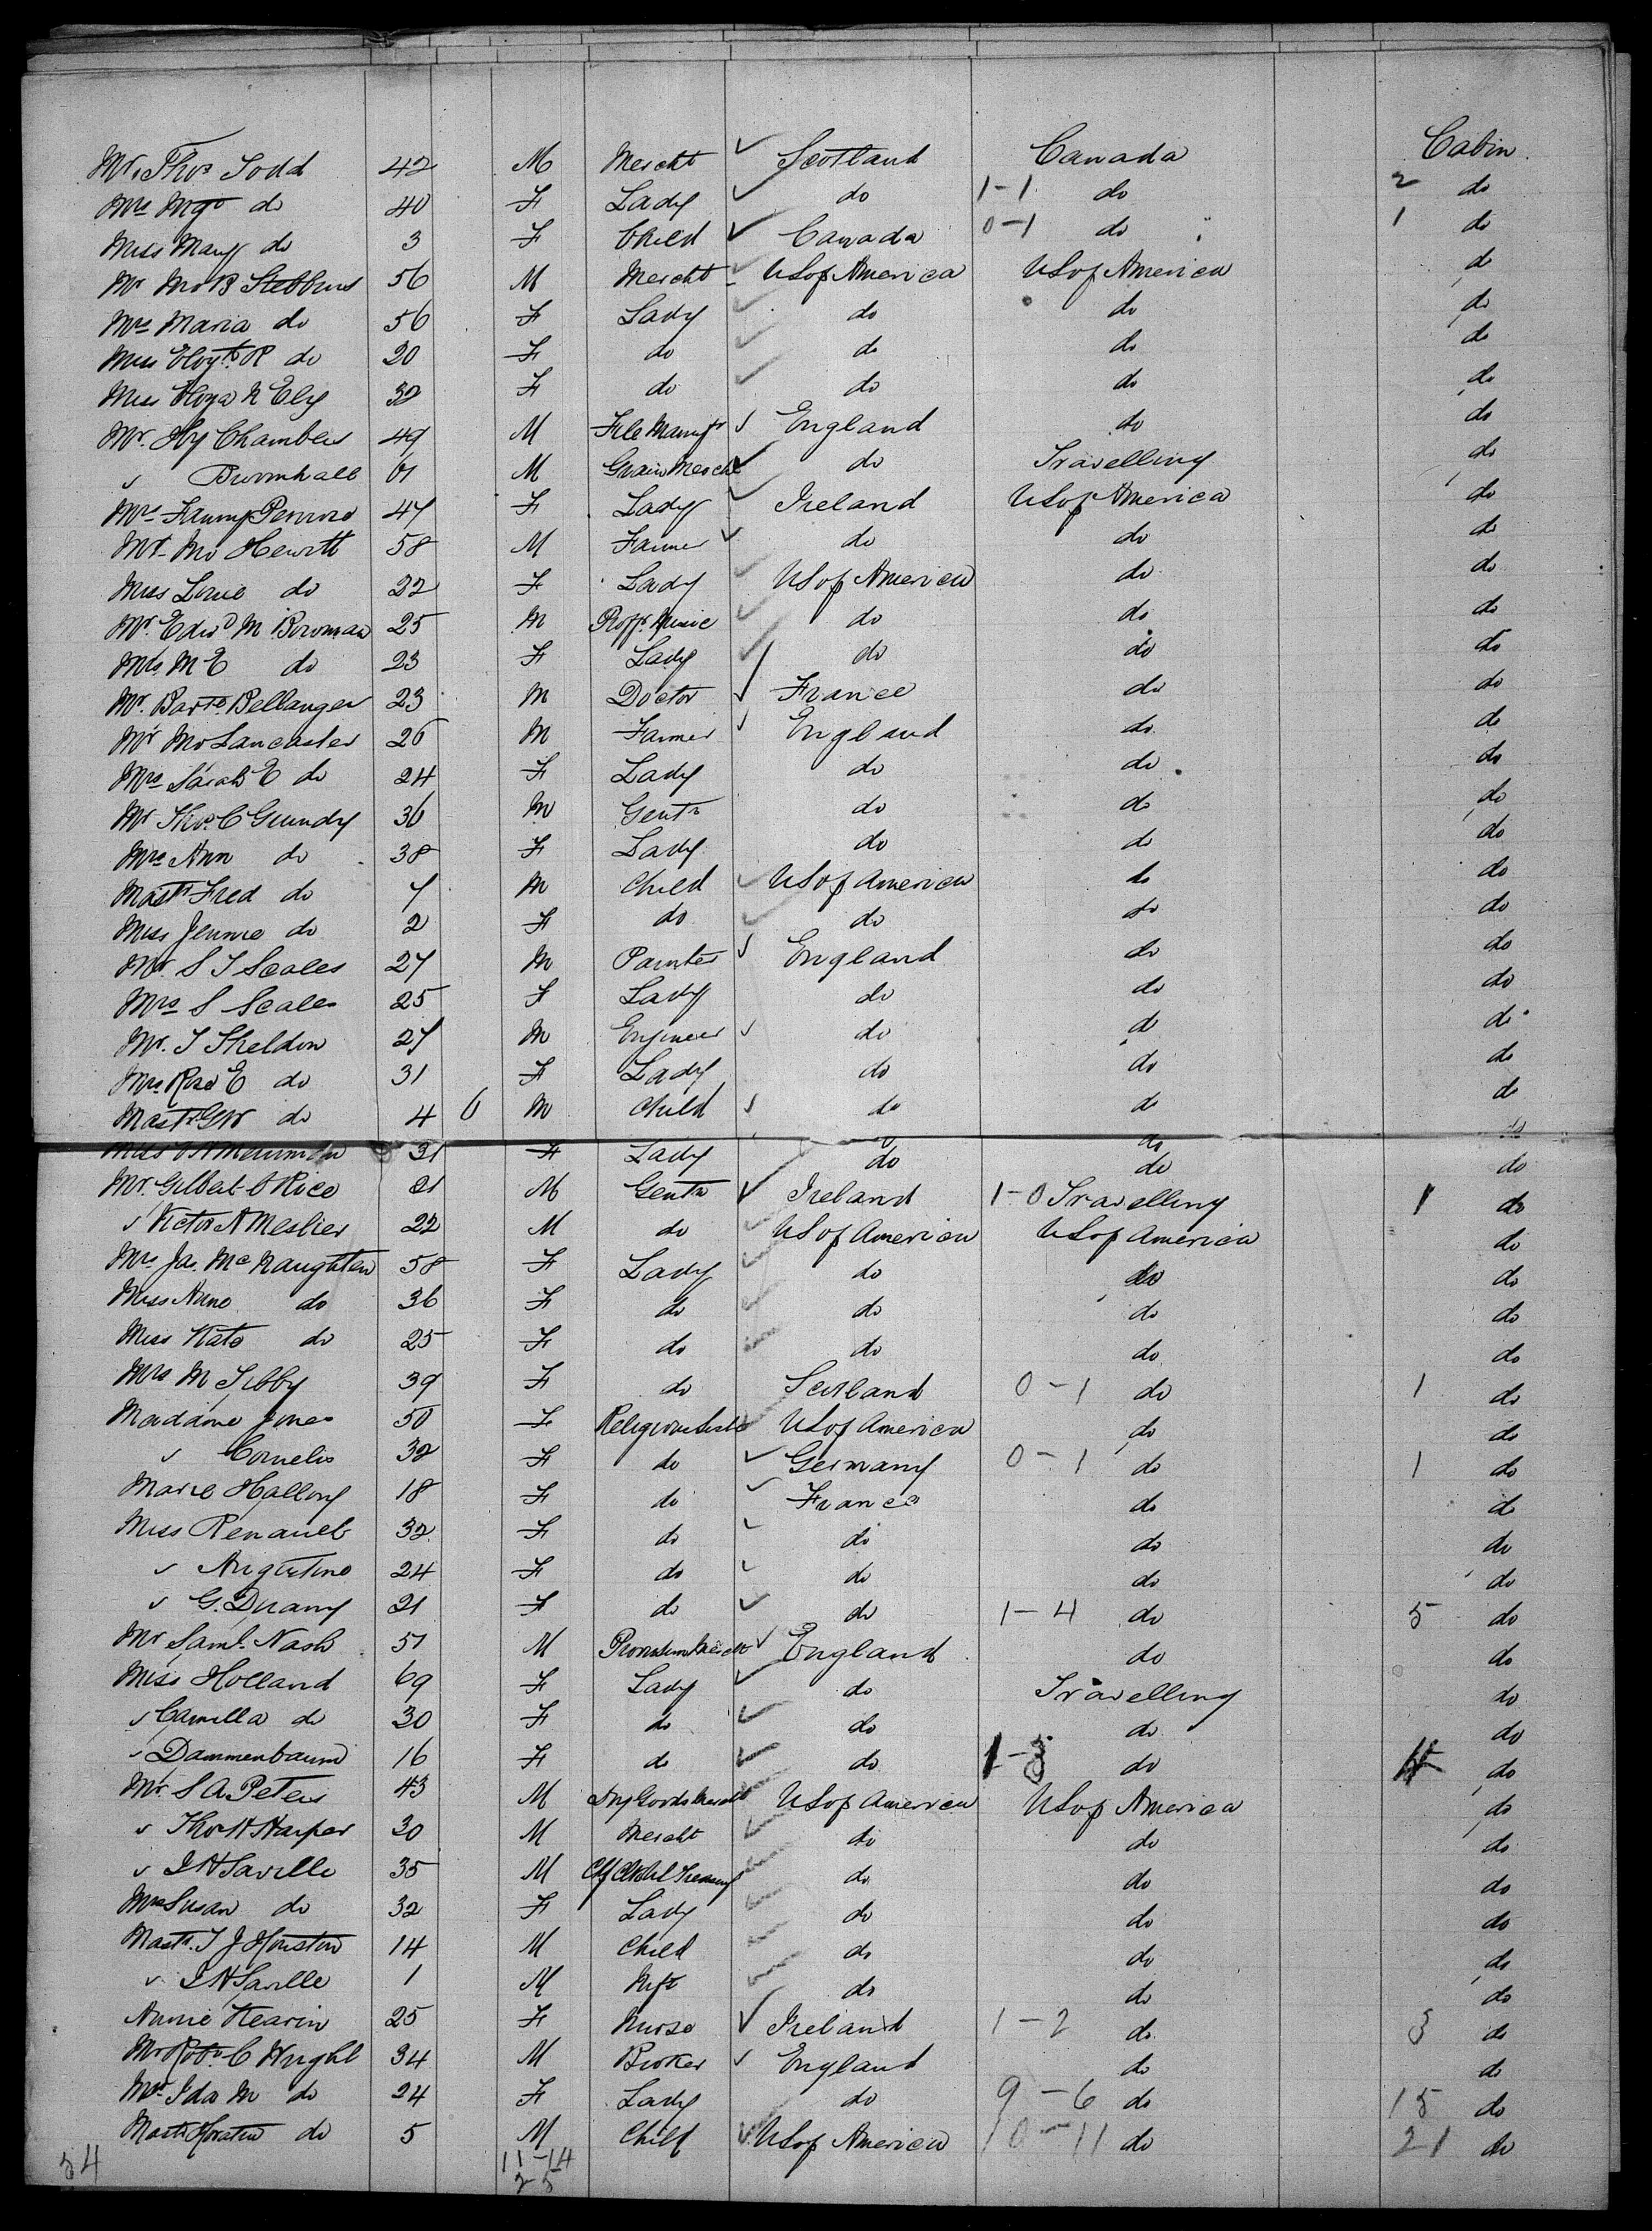 Mr. Thos Todd 42 M Mercht Scotland Canada Cabin
Mrs Mgt do 40 F Lady do 1-1 do 2 do
Miss Mary do 3 F Child Canada 0-1 do 1 do
Mr Jno B Stebbins 56 M Mercht U S of America U S of America do
Mrs Maria do 56 F Lady do do do
Miss R do 20 F do do do do
Miss N Ely 32 F do do do do
Mr. Hy Chambers 49 M File England do do
" Broomhall 61 M Grain Mercht do Travelling do
Mrs Fanny 47 F Lady Ireland U S of America do
Mr Jno Hewitt 58 M Farmer do do do
Miss do 22 F Lady U S of America do do
Mr. Edwd M Bowman 25 M Profr. Music do do do
Mrs. M E do 23 F Lady do do do
Mr. Bellanger 23 M Doctor France do do
Mr Jno Lancaster 26 M Farmer England do do
Mrs Sarah E do 24 F Lady do do do
Mr Thos. C Grundy 36 M Gentn do do do
Mrs Ann do 38 F Lady do do do
Mastr Fred do 7 M Child U S of America do do
Miss Jennie do 2 F do do do do
Mr S T Scales 27 M Painter England do do
Mrs S Scales 25 F Lady do do do
Mr. T Sheldon 27 M Engineer do do do
Mrs E do 31 F Lady do do do
Mastr G W do 4 6 M Child do do do
Miss 31 F Lady do do do
Mr. Gilbert Rice 21 M Gentn Ireland 1-0 Travelling 1 do
" Victor A Meslier 22 M do U S of America U S of America do
Mrs Jas. McNaughten 58 F Lady do do do
Miss Anne do 36 F do do do do
Miss Kate do 25 F do do do do
Mrs M Tibby 39 F do Scotland 0-1 do 1 do
Madame Jones 50 F Religious U S of America do do
" Cornelis 32 F do Germany 0-1 do 1 do
Marie 18 F do France do do
Miss Renault 32 F do do do do
" Augustine 24 F do do do do
" G. 21 F do do 1-4 do 5 do
Mr Saml. Nash 51 M Provision Mercht England do do
Miss Holland 69 F Lady do Travelling do
" Camilla do 30 F do do do do
" Dammenbaum 16 F do do 1-3 do 4 do
Mr. S A Peters 43 M Dry Goods Mercht U S of America U S of America do
" Thos H Harper 30 M Mercht do do do
" J H Saville 35 M Chf Clk Treasury do do do
Mrs Susan do 32 F Lady do do do
Mastr. T J Houston 14 M Child do do do
" J H Saville 1 M Inft do do do
Annie Kearin 25 F Nurse Ireland 1-2 do 3 do
Mr Robt C Wright 34 M Broker England do do
Mrs Ida M do 24 F Lady do 9-6 do 15 do
Mastr Horatio do 5 M Child U S of America 10-11 do 21 do
54 11-14
25